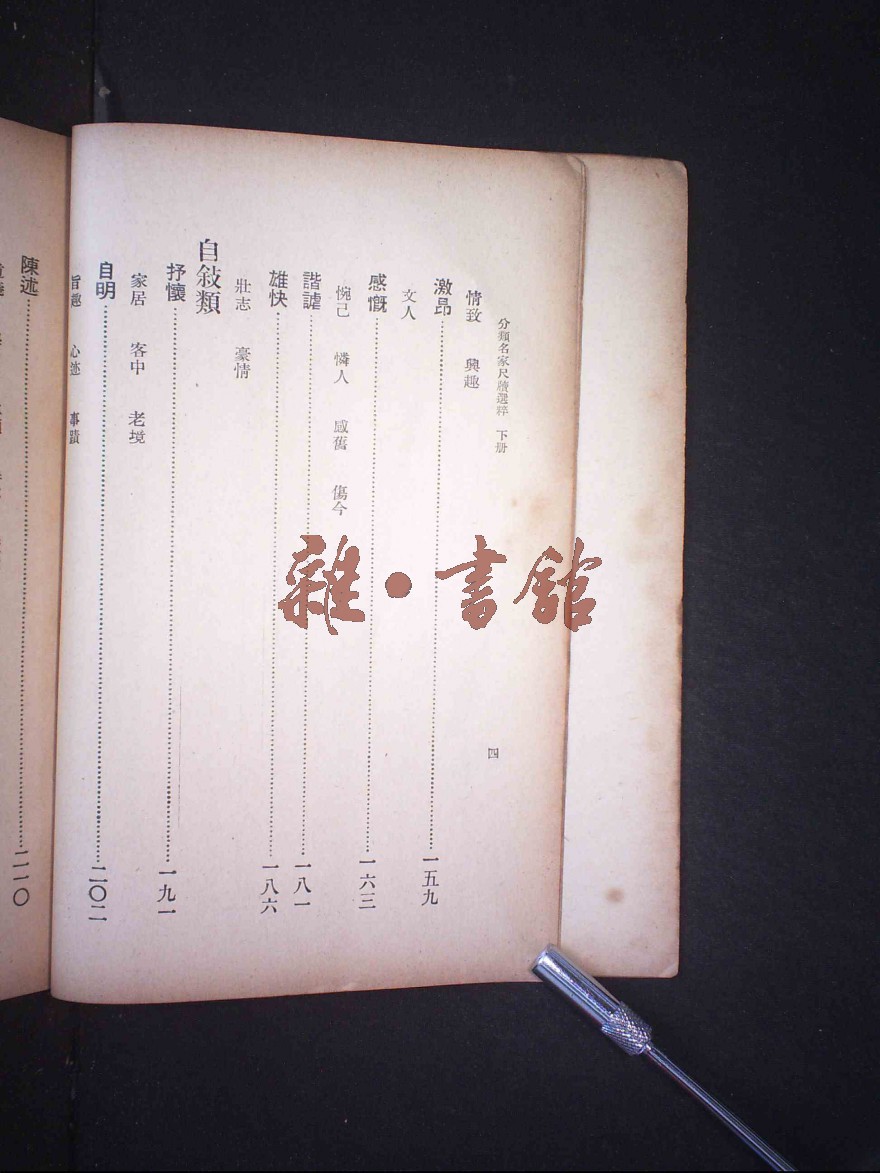 分類名家尺牘選粹 下册
四
情致 興趣
激昂 一五九
文人
感慨 一六三
惋己 憐人 感舊 傷今
諧謔 一八一
雄快 一八六
壯志 豪情
自敍類
抒懷 一九一
家居 客中 老境
自明 二〇二
旨趣 心迹 事蹟
陳述 二一〇
雜·書館